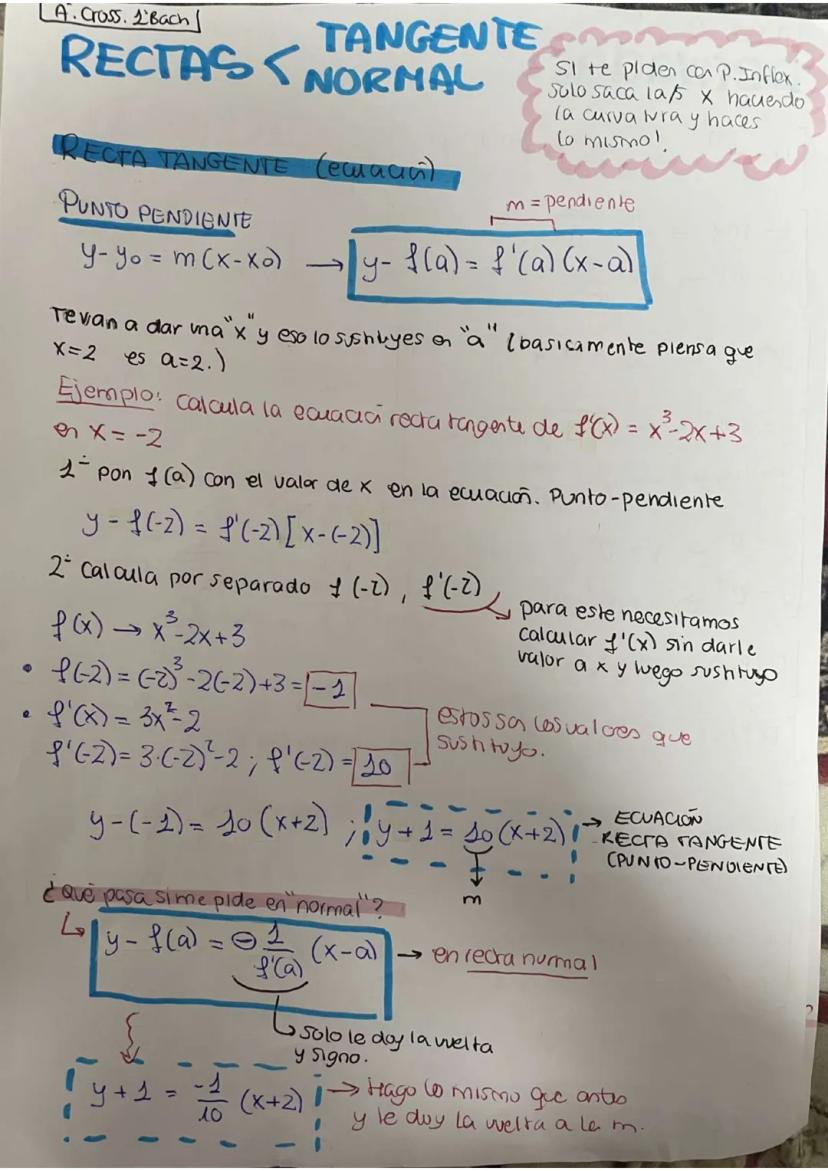 A. Cross. 1ºBach
RECTAS < TANGENTE
NORMAL
SI te piden con P. Inflex.
solo saca la/s x haciendo
la curvatura y haces
lo mismo!
RECTA TANGENTE (ecuación)
PUNTO PENDIENTE
m = pendiente
y - y₀ = m(x - x₀) → y - f(a) = f'(a)(x-a)
Te van a dar una "x" y eso lo sustituyes en "a" (basicamente piensa que
x=2 es a=2.)
Ejemplo: Calcula la ecuació recta tangente de f(x) = x³-2x+3
en x = -2
1º pon f(a) con el valor de x en la ecuación. Punto-pendiente
y - f(-2) = f'(-2)[x-(-2)]
2º Calcula por separado f(-2), f'(-2)
para este necesitamos
calcular f'(x) sin darle
valor a x y luego sustituyo
f(x) → x³-2x+3
• f(-2) = (-2)³ - 2(-2)+3 = -1
• f'(x) = 3x²-2
f'(-2) = 3·(-2)²-2 ; f'(-2) = 10
estos son los valores que
sustituyo.
y-(-1) = 10(x+2) ; y+1 = 10(x+2) → ECUACIÓN
RECTA TANGENTE
(PUNTO-PENDIENTE)
m
¿Qué pasa si me pide en "normal"?
y - f(a) = - 1/f'(a) (x-a) → en recta normal
solo le doy la vuelta
y signo.
y + 1 = -1/10 (x+2) → Hago lo mismo que antes
y le doy la vuelta a la m.